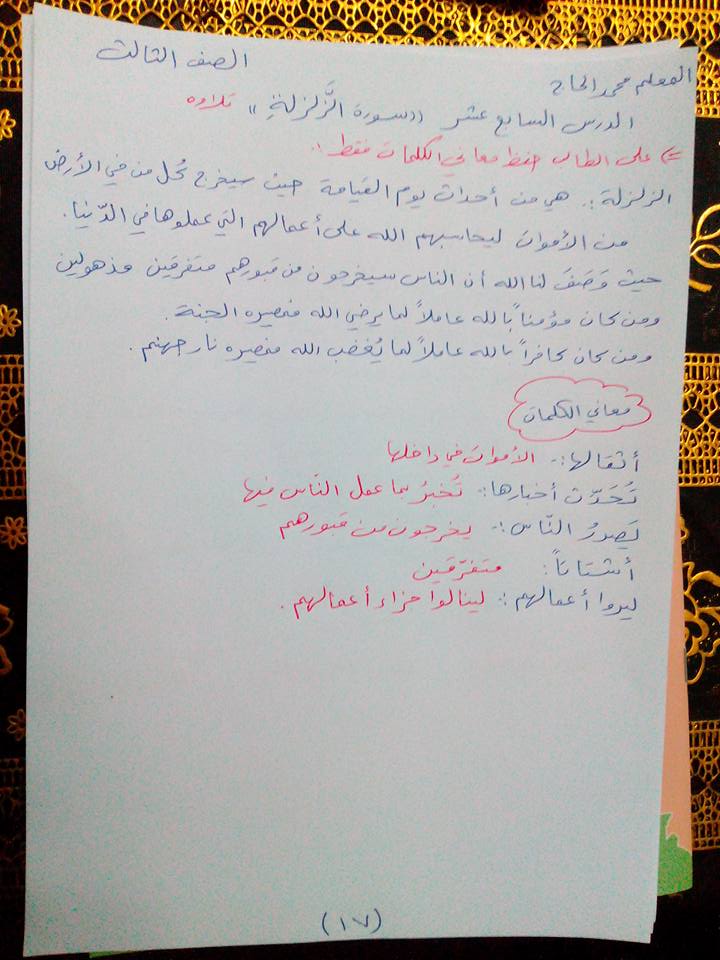 المعلم محمد الحاج
الصف الثالث
الدرس السابع عشر ((سورة الزَّلزلةِ)) تلاوه
=> على الطالب حفظ معاني الكلمات فقط :.
الزلزلة :. هي من أحداث يوم القيامة حيث سيخرج كُل من في الأرض
من الأموات ليحاسبهم الله على أعمالهم التي عملوها في الدّنيا.
حيث وَصَفَ لنا الله أن الناس سيخرجون من قبورهم متفرقين مذهولين
ومن كان مؤمناً بالله عاملاً لما يرضي الله فمصيره الجنة.
ومن كان كافراً بالله عاملاً لما يُغضب الله فمصيره نار جهنم.
معاني الكلمات
أثقالها :- الأموات في داخلها
تُحَدّث أخبارها :- تُخبرُ بما عمل النّاس فيها
يَصدرُ النّاس :- يخرجون من قبورهم
أشتاتاً : متفرّقين
ليروا أعمالهم :. لينالوا جزاء أعمالهم.
(١٧)